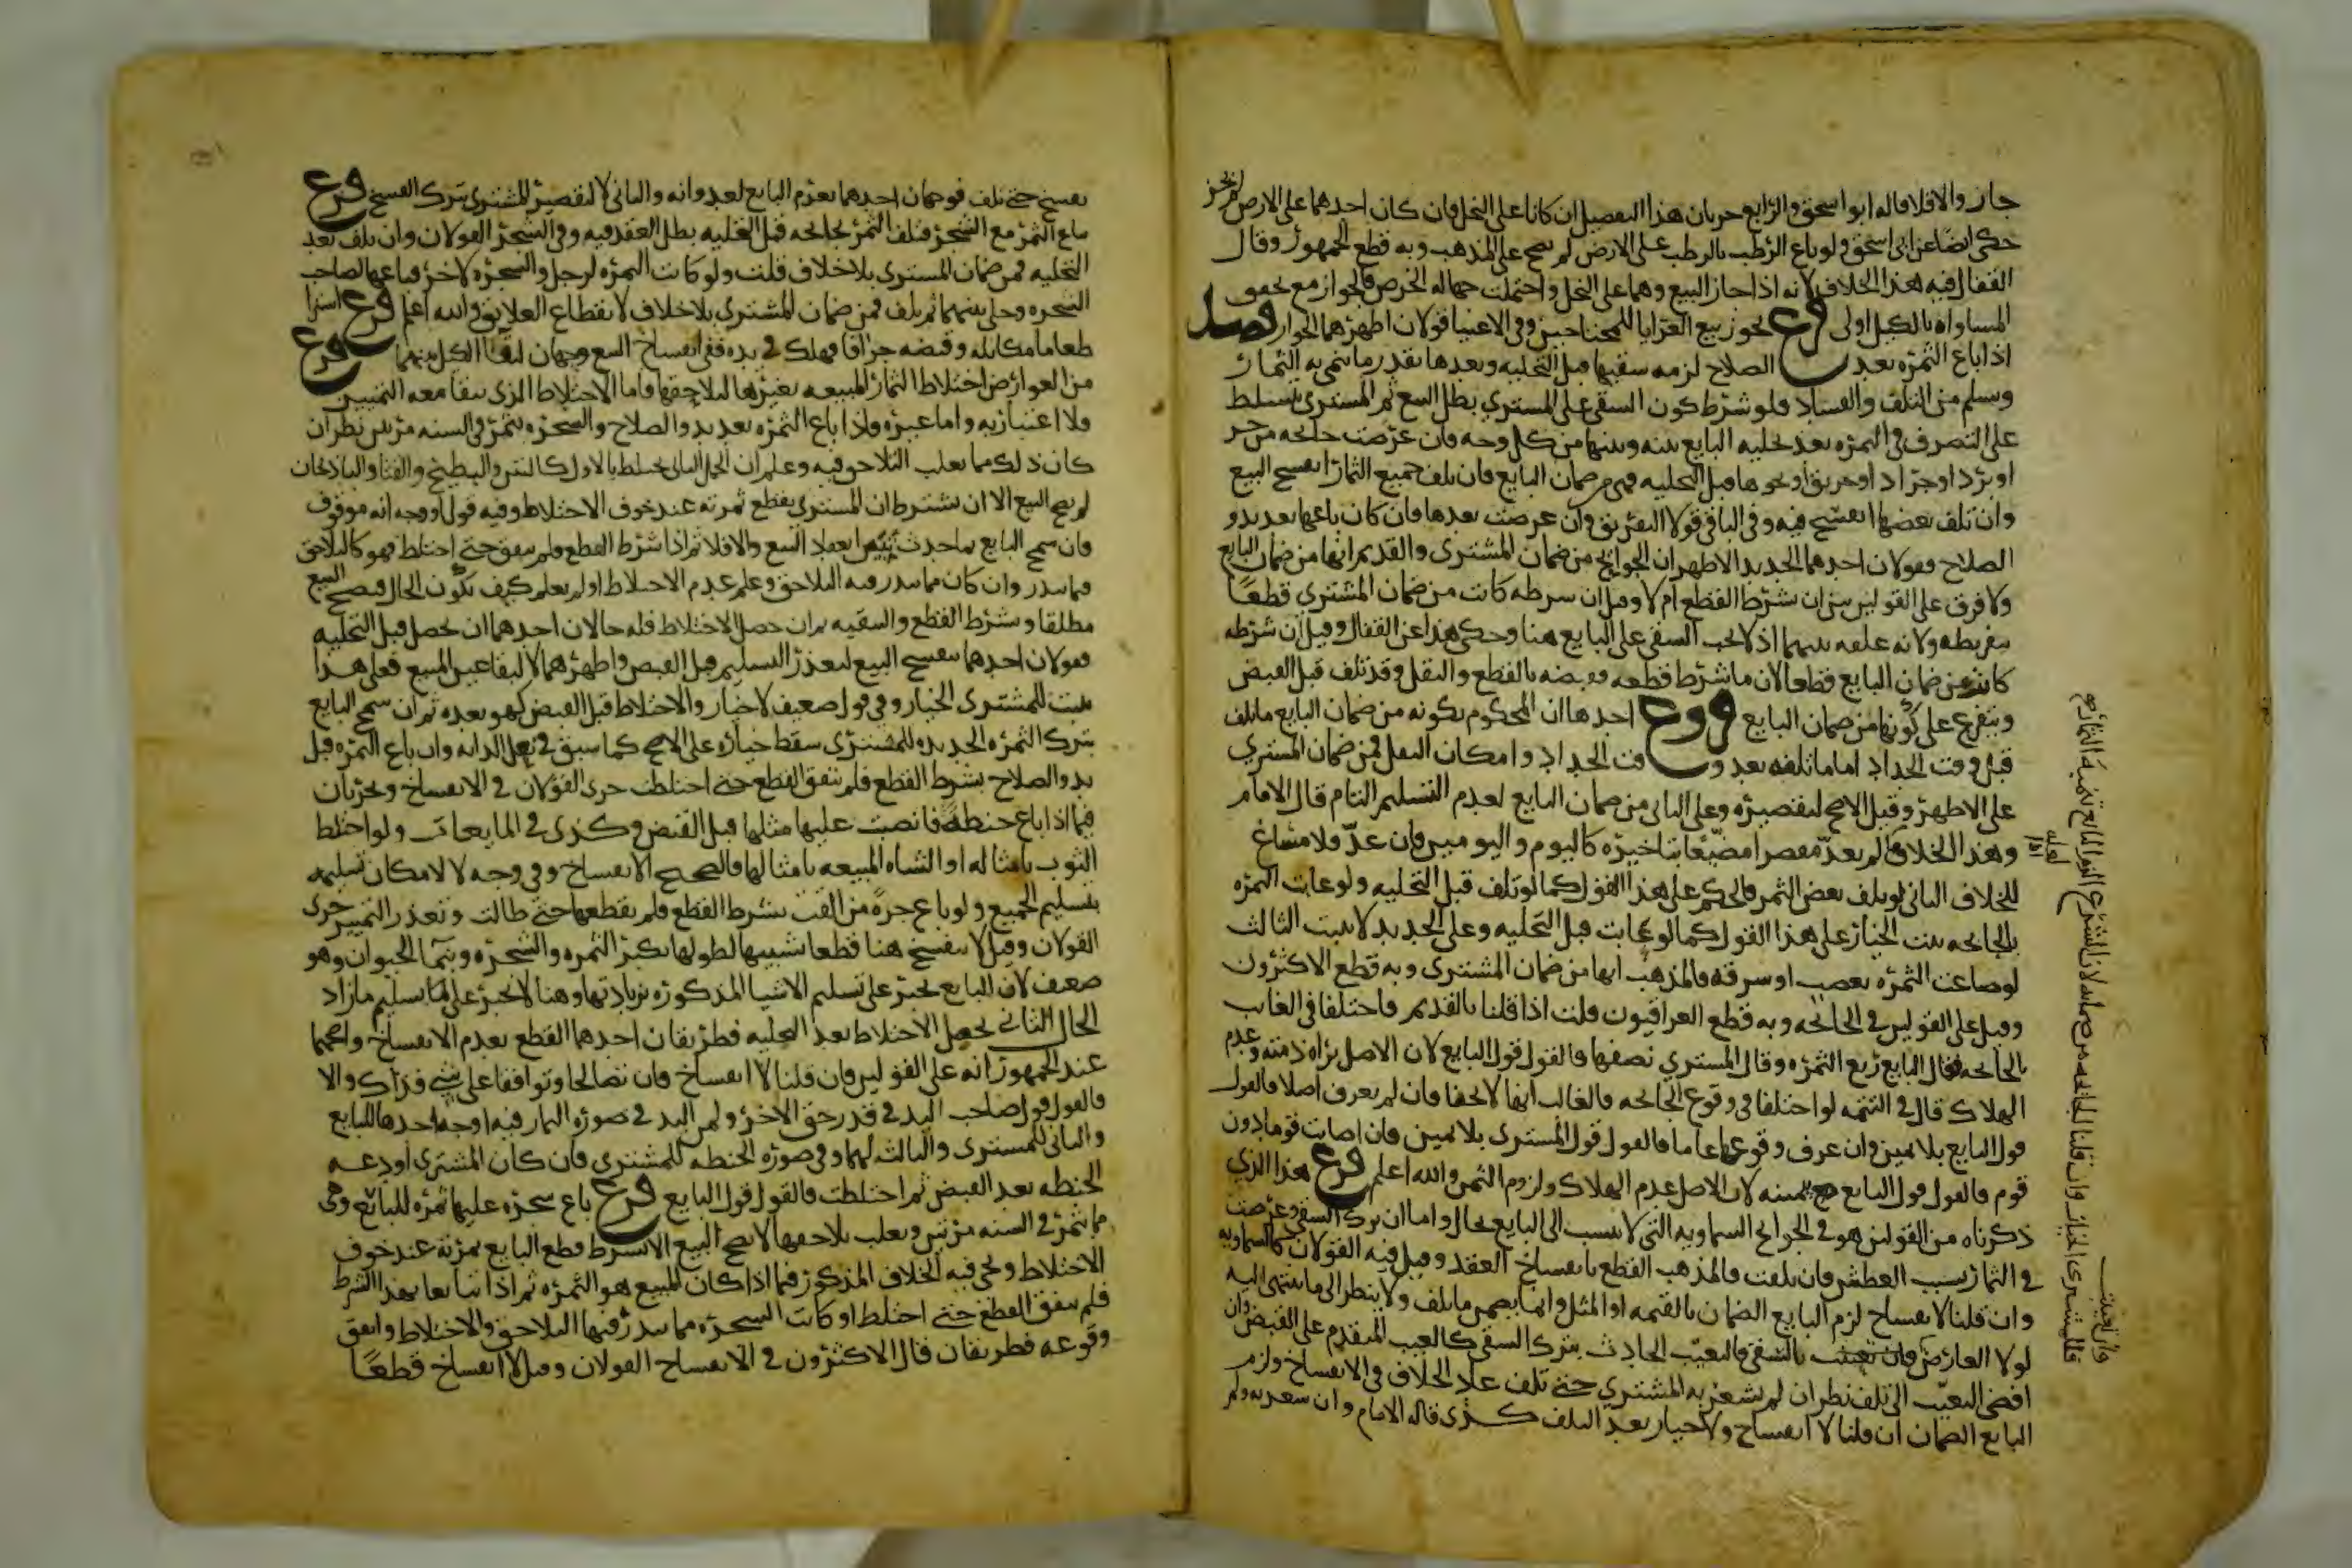 جاز والا فلا قاله ابو اسحق والرابع جريان هذا التفصيل ان كانا على النخل فان كان احدهما على الارض لم يجز
حكى ايضا عن ابي اسحق ولو باع الرطب بالرطب على الارض لم يصح على المذهب وبه قطع الجمهور وقال
القفال فيه هذا الخلاف لانه اذا جاز البيع وهما على النخل واحتملت جهالة الخرص فالجواز مع تحقق
المساواه بالكيل اولى فرع يجوز بيع العرايا للمحتاجين وفي الاغنيا قولان اظهرهما الجواز فصل
اذا باع الثمره بعد الصلاح لزمه سقيها قبل التخليه وبعدها بقدر ما ينمي به الثمار
وتسلم من التلف والفساد فلو شرط كون السقي على المشتري بطل البيع ثم المشتري يتسلط
على التصرف في الثمره بعد تخليه البايع بينه وبينها من كل وجه فان عرضت جايحه من حر
او برد او جراد او حريق او نحوها قبل التخليه فهي من ضمان البايع فان تلف جميع الثمار انفسخ البيع
وان تلف بعضها انفسخ فيه وفي الباقي قولا التفريق وان عرضت بعدها فان كان باعها بعد بدو
الصلاح فقولان احدهما الجديد الاظهر ان الجوايح من ضمان المشتري والقديم انها من ضمان البايع
ولا فرق على القولين بين ان شرط القطع ام لا وقيل ان شرطه كانت من ضمان المشتري قطعًا
بتفريطه ولانه علقه بينهما اذ لا يجب السقي على البايع هنا وحكي هذا عن القفال وقيل ان شرطه
كانت من ضمان البايع قطعا لان ما شرط قطعه فقبضه بالقطع والنقل وقد تلف قبل القبض
ويتفرع على كونها من ضمان البايع فروع احدها ان المحكوم بكونه من ضمان البايع ما تلف
قبل وقت الجداد اما ما تلفه بعد وقت الجداد وامكان النقل فمن ضمان المشتري
على الاظهر وقيل الاصح لتقصيره وعلى الثاني من ضمان البايع لعدم التسليم التام قال الامام
وهذا الخلاف فيما لم يعدّ مقصرا مضيّعًا بتاخيره كاليوم واليومين فان عدّ فلا مساغ
للخلاف الثاني لو تلف بعض الثمر فالحكم على هذا القول كما لو تلف قبل التخليه ولو عابت الثمره
بالجايحه ثبت الخيار على هذا القول كما لو عابت قبل التخليه وعلى الجديد لا يثبت الثالث
لو ضاعت الثمره بغصب او سرقه فالمذهب انها من ضمان المشتري وبه قطع الاكثرون
وقيل على القولين في الجايحه وبه قطع العراقيون قلت اذا قلنا بالقديم فاختلفا في الغايب
بالجايحه فقال البايع ربع الثمره وقال المشتري نصفها فالقول قول البايع لان الاصل براه ذمته وعدم
الهلاك قال في التتمه لو اختلفا في وقوع الجايحه فالغالب انها لا تخفا فان لم يعرف اصلا فالقول
قول البايع بلا يمين وان عرف وقوعها عاما فالقول قول المشتري بلا يمين فان اصابت قوما دون
قوم فالقول قول البايع بيمينه لان الاصل عدم الهلاك ولزوم الثمن والله اعلم فرع هذا الذي
ذكرناه من القولين هو في الجوايح السماويه التي لا تنسب الى البايع بحال واما ان ترك السقي وعرضت
في الثمار بسبب العطش فان تلفت فالمذهب القطع بانفساخ العقد وقيل فيه القولان كالسماويه
وان قلنا لا انفساخ لزم البايع الضمان بالقيمه او المثل وانما يضمن ما تلف ولا ينظر الى ما ينتهي اليه
لولا العارض فان تعيبت بالسقي فالتعيب الحادث بترك السقي كالعيب المتقدم على القبض وان
افضى التعيّب الى تلف نظر ان لم يشعر به المشتري حتى تلف عاد الخلاف في الانفساخ ولزم
البايع الضمان ان قلنا لا انفساخ ولا خيار بعد التلف كذى قاله الامام وان شعر به ولم
وان تعيبت فللمشتري الخيار وان قلنا الجايحه من ضمانه لان الشرع الزم البايع تنميه الثمار
يفسخ حتى تلف فوجهان احدهما يغرم البايع لعدوانه والثاني لا لتقصير المشتري بترك الفسخ فرع
باع الثمر مع الشجر فتلف الثمر بجايحه قبل التخليه بطل العقد فيه وفي الشجر القولان وان تلف بعد
التخليه فمن ضمان المشتري بلا خلاف قلت ولو كانت الثمره لرجل والشجره لاخر فباعها لصاحب
الشجره وخلى بينهما ثم تلف فمن ضمان المشتري بلا خلاف لانقطاع العلايق والله اعلم فرع اشترا
طعاما مكايله وقبضه جزافا فهلك في يده ففي انفساخ البيع وجهان لبقا الكيل بينهما فرع
من العوارض اختلاط الثمار المبيعه بغيرها لتلاحقها فاما الاختلاط الذي يبقا معه التمييز
فلا اعتبار به واما غيره فاذا باع الثمره بعد بدو الصلاح والشجره تثمر في السنه مرتين نظر ان
كان ذلك مما يغلب التلاحق فيه وعلم ان الحمل الثاني يختلط بالاول كالتين والبطيخ والقثا والباذنجان
لم يصح البيع الا ان يشترط ان المشتري يقطع ثمرته عند خوف الاختلاط وفيه قول او وجه انه موقوف
فان سمح البايع بما حدث تبين انعقاد البيع والا فلا ثم اذا شرط القطع فلم يتفق حتى اختلط فهو كالتلاحق
فيما يندر وان كان مما يندر فيه التلاحق وعلم عدم الاختلاط او لم يعلم كيف تكون الحال فيصح البيع
مطلقا وبشرط القطع والتبقيه ثم ان حصل الاختلاط فله حالان احدهما ان يحصل قبل التخليه
فقولان احدهما ينفسخ البيع لتعذر التسليم قبل القبض واظهرهما لا لبقا عين المبيع فعلى هذا
يثبت للمشتري الخيار وفي قول ضعيف لا خيار والاختلاط قبل القبض كهو بعده ثم ان سمح البايع
بترك الثمره الجديده للمشتري سقط خياره على الاصح كما سبق في نعل الدابه وان باع الثمره قبل
بدو الصلاح بشرط القطع فلم يتفق القطع حتى اختلطت جرى القولان في الانفساخ ويجريان
فيما اذا باع حنطةً فانصبت عليها مثلها قبل القبض وكذى في المايعات ولو اختلط
الثوب بامثاله او الشاه المبيعه بامثالها فالصحيح الانفساخ وفي وجه لا لامكان تسليمه
بتسليم الجميع ولو باع جزه من القت بشرط القطع فلم يقطعها حتى طالت وتعذر التمييز جرى
القولان وقيل لا ينفسخ هنا قطعا تشبيها لطولها بكبر الثمره والشجره وبنما الحيوان وهو
ضعف لان البايع يجبر على تسليم الاشيا المذكوره بزيادتها وهنا لا يجبر على تسليم ما زاد
الحال الثاني يحصل الاختلاط بعد التخليه فطريقان احدهما القطع بعدم الانفساخ واصحهما
عند الجمهور انه على القولين فان قلنا لا انفساخ فان تصالحا وتوافقا على شي فذاك والا
فالقول قول صاحب اليد في قدر حق الاخر ولمن اليد في صوره الثمار فيه اوجه احدها للبايع
والثاني للمشتري والثالث لهما وفي صوره الحنطه للمشتري فان كان المشتري اودعه
الحنطه بعد القبض ثم اختلطت فالقول قول البايع فرع باع شجره عليها ثمره للبايع وهي
مما تثمر في السنه مرتين ويغلب تلاحقها لا يصح البيع الا بشرط قطع البايع ثمرته عند خوف
الاختلاط ويجي فيه الخلاف المذكور فيما اذا كان المبيع هو الثمره ثم اذا تبايعا بهذا الشرط
فلم يتفق القطع حتى اختلط او كانت الشجره مما يندر فيها التلاحق والاختلاط واتفق
وقوعه فطريقان قال الاكثرون في الانفساخ القولان وقيل لا انفساخ قطعًا